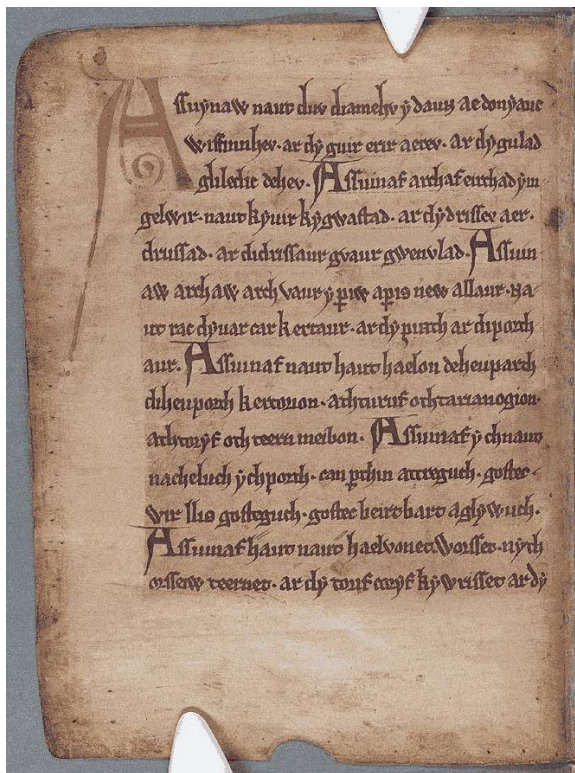 Assuynaw naut duv diamehv y daun ae donyauc
wiffinnhev. ar dy guir erir aerev. ar dy gulad
guledic dehev. Assuinaf archaf eirchad ym
gelwir. naut kyuir kygwastad. ar dy drissev aer.
drussad. ar didrissaur gvaur gwenvlad. Assuin
aw archaw arch vaur y piw apis new allaur. na
ut rac dyuar car kertaur. ar dy pirth ar diporth
aur. Assuinaf naut haut haelon deheuparth
diheuporth kertorion. ath turuf oth tarianogion.
ath toryf oth teern meibon. Assuinaf ych naut
nacheluch ych porth. can pthin attreguch. gostec.
wir llis gosteguch. gostec beirt bart aglywuch.
Assuinaf haut naut haelvonet Worsset. nyth
orssew teernet. ar dy toruf toryf kywrisset ar dy